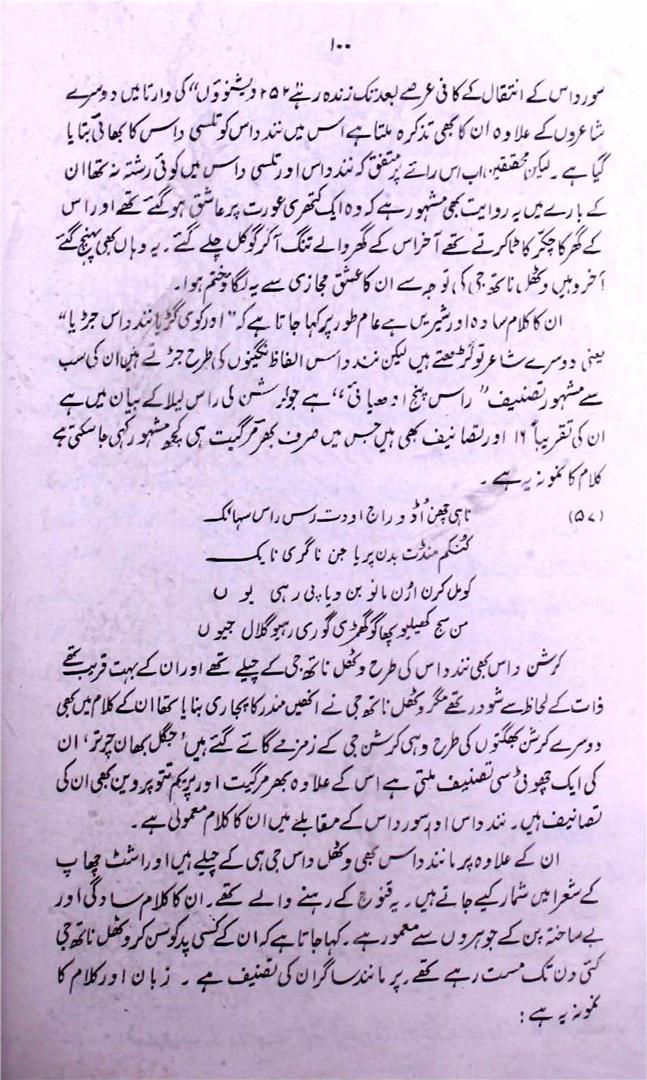 ۱۰۰
سورداس کے انتقال کے کافی عرصے بعد تک زندہ رہے ۲۵۲ ویشنوؤں" کی وارتا میں دوسرے
شاعروں کے علاوہ ان کا بھی تذکرہ ملتا ہے اس میں نند داس کو تلسی داس کا بھائی بتایا
گیا ہے ۔ لیکن محققین اب اس رائے پر متفق کہ نند داس اور تلسی داس میں کوئی رشتہ نہ تھا ان
کے بارے میں یہ روایت بھی مشہور ہے کہ وہ ایک کھتری عورت پر عاشق ہو گئے تھے اور اس
کے گھر کا چکر کاٹا کرتے تھے آخر اس کے گھر والے تنگ آکر گوکل چلے گئے ۔ یہ وہاں بھی پہنچ گئے
آخر وہیں وٹھل ناتھ جی کی توجہ سے ان کا عشق مجازی سے یہ لگاؤ ختم ہوا۔
ان کا کلام سادہ اور شیریں ہے عام طور پر کہا جاتا ہے کہ "اور کوی گڑیا نند داس جڑیا"
یعنی دوسرے شاعر تو گڑھتے ہیں لیکن نند داس الفاظ نگینوں کی طرح جڑتے ہیں ان کی سب
سے مشہور تصنیف "راس پنچ ادھیائی" ہے جو کرشن کی راس لیلا کے بیان میں ہے
ان کی تقریباً ۱۶ اور تصانیف بھی ہیں جس میں صرف بھرمر گیت ہی کچھ مشہور کہی جا سکتی ہے
کلام کا نمونہ یہ ہے ۔
(۵۷) تاہی چھن اُڈوراج اودت رس راس سہائک
کُنکم منڈت بدن پریا جن ناگری نایک
کومل کرن ارُن مانو بن ویاپی رہی یوں
من سج کھیلیو پھاگو گھمڑی گوری رہیو گلال جیوں
کرشن داس بھی نند داس کی طرح وٹھل ناتھ جی کے چیلے تھے اور ان کے بہت قریب تھے
ذات کے لحاظ سے شودر تھے مگر وٹھل ناتھ جی نے انھیں مندر کا پجاری بنایا تھا ان کے کلام میں بھی
دوسرے کرشن بھگتوں کی طرح وہی کرشن جی کے زمزمے گائے گئے ہیں 'جگل بھان چرتر' ان
کی ایک چھوٹی سی تصنیف ملتی ہے اس کے علاوہ بھرمر گیت اور پریم تتو پروین بھی ان کی
تصانیف ہیں ۔ نند داس اور سورداس کے مقابلے میں ان کا کلام معمولی ہے ۔
ان کے علاوہ پرمانند داس بھی وٹھل داس جی ہی کے چیلے ہیں اور اشٹ چھاپ
کے شعرا میں شمار کیے جاتے ہیں ۔ یہ قنوج کے رہنے والے تھے ۔ ان کا کلام سادگی اور
بے ساختہ پن کے جوہروں سے معمور ہے ۔ کہا جاتا ہے کہ ان کے کسی پد کو سن کر وٹھل ناتھ جی
کئی دن تک مست رہے تھے پرمانند ساگر ان کی تصنیف ہے ۔ زبان اور کلام کا
نمونہ یہ ہے :